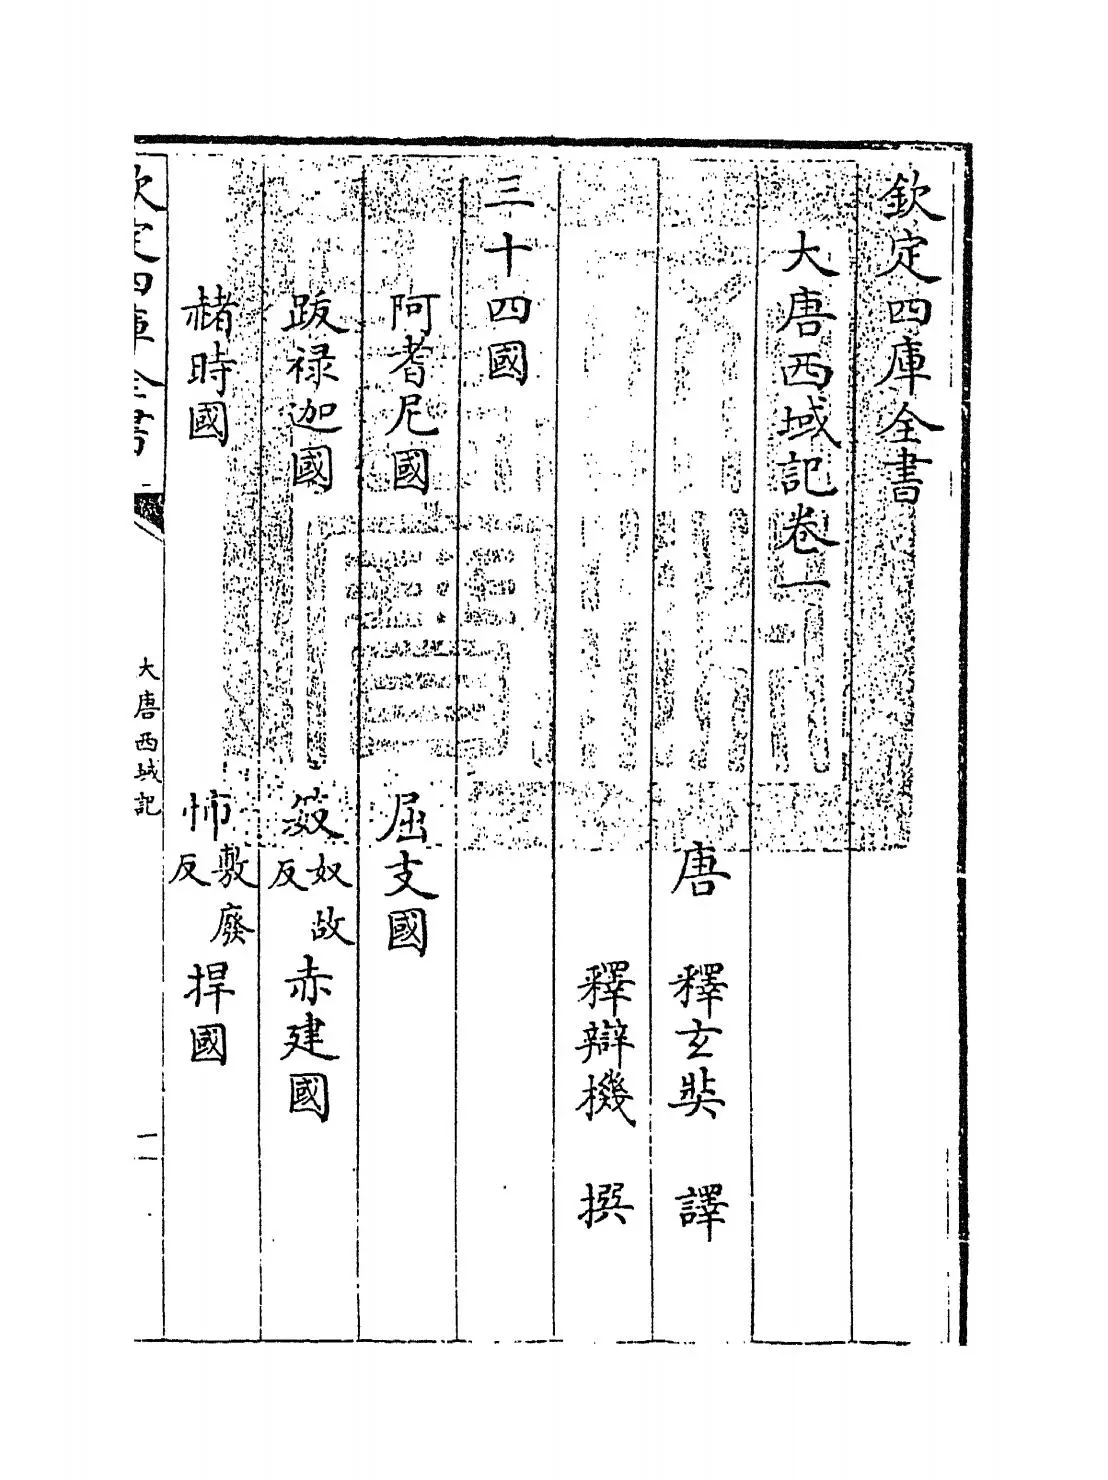 欽定四庫全書
大唐西域記卷一
唐 釋玄奘 譯
釋辯機 撰
三十四國
阿耆尼國 屈支國
跋禄迦國 笯奴故反赤建國
赭時國 㤄敷廢反捍國
欽定四庫全書 大唐西域記 一